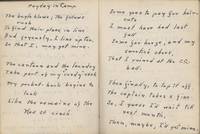 Payday in Camp
The bugle blows; the fellows
rush
To find their place in line
And eagerly, I line up too,
So that I may get mine.
The canteen and the laundry
Take part of my ready cash
My pocket-book begins to
look
Like the remains of the
Red
Some goes to pay for hair
cuts
I must have had last
fall
Some for hose, and my
sweetish shoes
That I ruined at the
ball.
Then finally, to top it off
the captain takes a fine.
So, I guess I'd wait till
next month,
Then, maybe, I'll get mine.